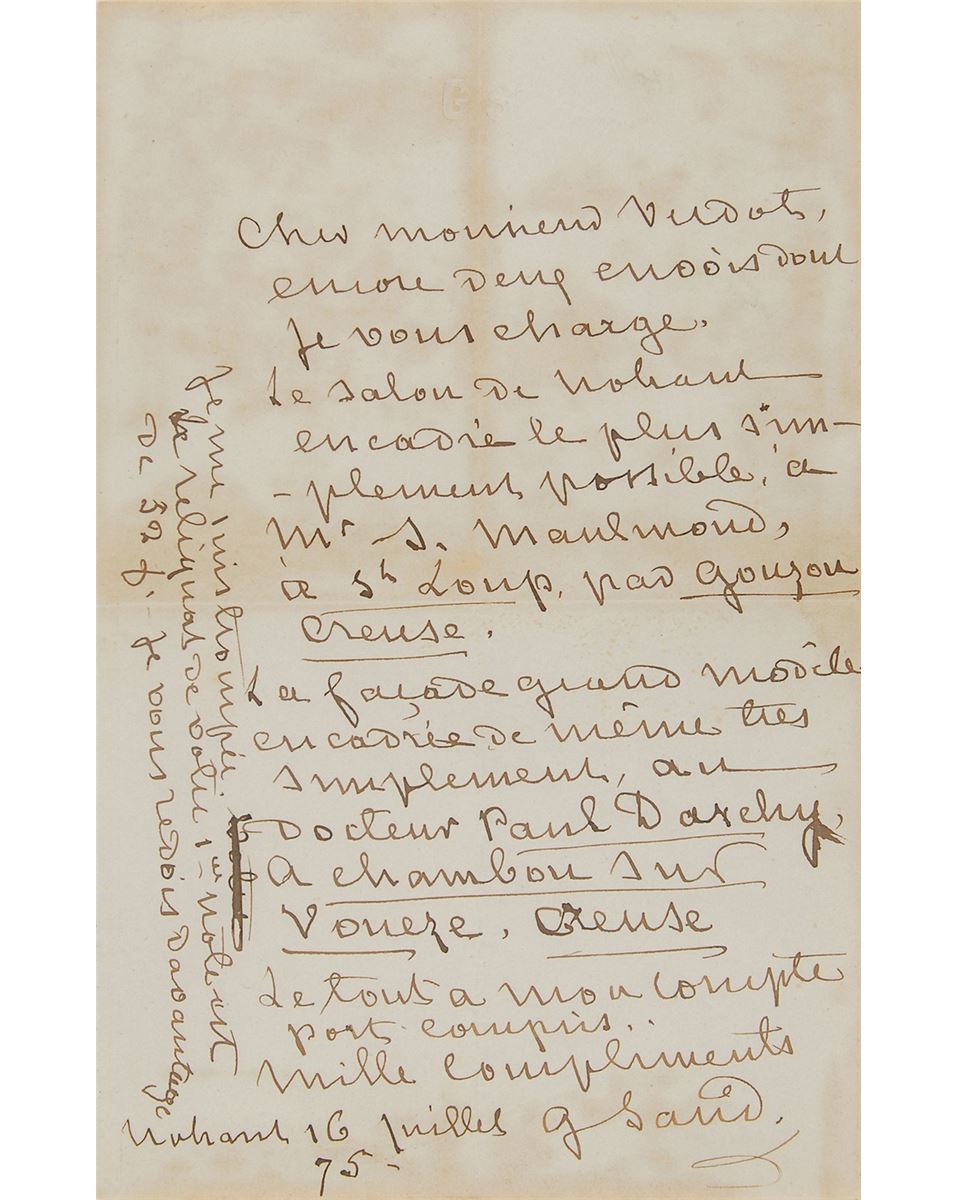 Cher monsieur Verdot,
encore deux envois dont
je vous charge.
Le salon de Nohant
encadré le plus sim-
-plement possible, à
Mr S. Maulmond,
à St Loup, par Gouzon
Creuse.
La façade grand modèle
encadrée de même très
simplement, au
Docteur Paul Darchy,
à Chambon sur
Voueze, Creuse
Le tout à mon compte
port compris..
Mille compliments
G Sand.
Nohant 16 juillet
75-
Je me suis trompée
Le reliquat de votre 1ere note est
de 52 f. - Je vous redois davantage